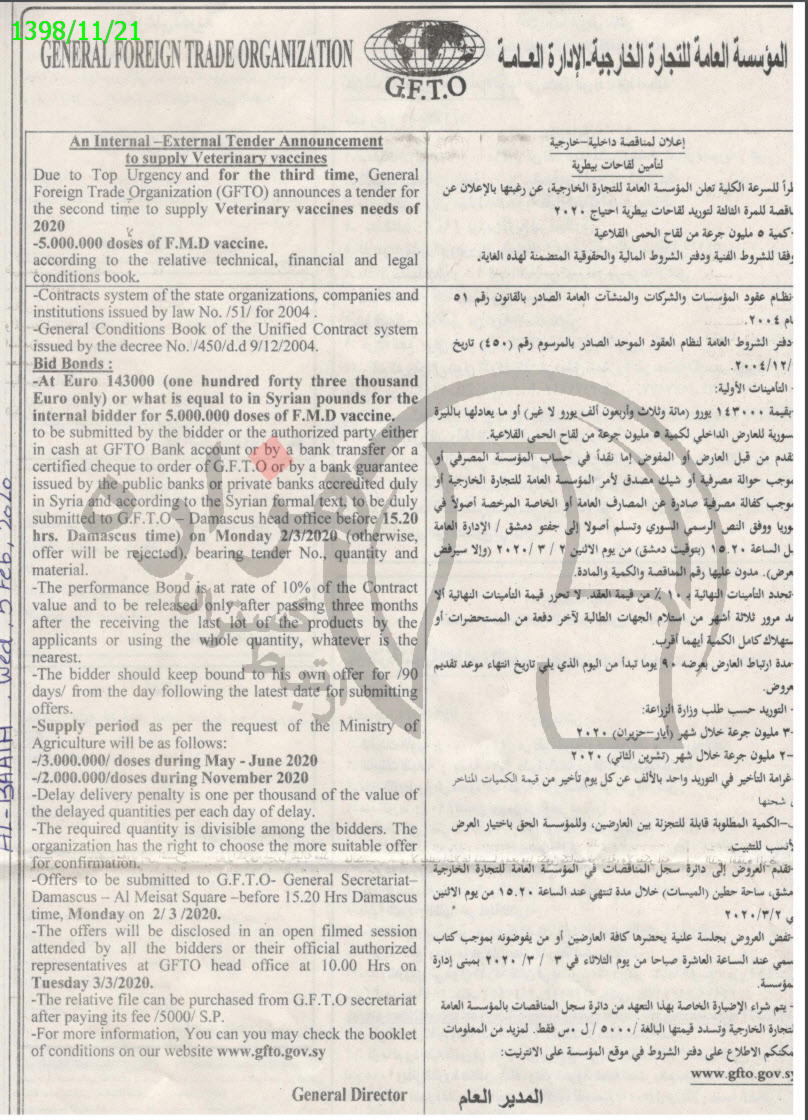 1398/11/21
GENERAL FOREIGN TRADE ORGANIZATION
G.F.T.O
المؤسسة العامة للتجارة الخارجية-الإدارة العـامـة
An Internal –External Tender Announcement
to supply Veterinary vaccines
Due to Top Urgency and for the third time, General
Foreign Trade Organization (GFTO) announces a tender for
the second time to supply Veterinary vaccines needs of
2020
-5.000.000 doses of F.M.D vaccine.
according to the relative technical, financial and legal
conditions book.
-Contracts system of the state organizations, companies and
institutions issued by law No. /51/ for 2004 .
-General Conditions Book of the Unified Contract system
issued by the decree No. /450/d.d 9/12/2004.
Bid Bonds :
-At Euro 143000 (one hundred forty three thousand
Euro only) or what is equal to in Syrian pounds for the
internal bidder for 5.000.000 doses of F.M.D vaccine.
to be submitted by the bidder or the authorized party either
in cash at GFTO Bank account or by a bank transfer or a
certified cheque to order of G.F.T.O or by a bank guarantee
issued by the public banks or private banks accredited duly
in Syria and according to the Syrian formal text to be duly
submitted to G.F.T.O - Damascus head office before 15.20
hrs. Damascus time) on Monday 2/3/2020 (otherwise,
offer will be rejected), bearing tender No., quantity and
material.
-The performance Bond is at rate of 10% of the Contract
value and to be released only after passing three months
after the receiving the last lot of the products by the
applicants or using the whole quantity, whatever is the
nearest.
-The bidder should keep bound to his own offer for /90
days/ from the day following the latest date for submitting
offers.
-Supply period as per the request of the Ministry of
Agriculture will be as follows:
-/3.000.000/ doses during May - June 2020
-/2.000.000/doses during November 2020
-Delay delivery penalty is one per thousand of the value of
the delayed quantities per each day of delay.
-The required quantity is divisible among the bidders. The
organization has the right to choose the more suitable offer
for confirmation.
-Offers to be submitted to G.F.T.O- General Secretariat–
Damascus – Al Meisat Square –before 15.20 Hrs Damascus
time, Monday on 2/ 3 /2020.
-The offers will be disclosed in an open filmed session
attended by all the bidders or their official authorized
representatives at GFTO head office at 10.00 Hrs on
Tuesday 3/3/2020.
-The relative file can be purchased from G.F.T.O secretariat
after paying its fee /5000/ S.P.
-For more information, You can you may check the booklet
of conditions on our website www.gfto.gov.sy
General Director
إعلان لمناقصة داخلية-خارجية
لتأمين لقاحات بيطرية
للسرعة الكلية تعلن المؤسسة العامة للتجارة الخارجية، عن رغبتها بالإعلان عن
للمرة الثالثة لتوريد لقاحات بيطرية احتياج ٢٠٢٠
-كمية ٥ مليون جرعة من لقاح الحمى القلاعية
وفقا للشروط الفنية ودفتر الشروط المالية والحقوقية المتضمنة لهذه الغاية.
-نظام عقود المؤسسات والشركات والمنشآت العامة الصادر بالقانون رقم ٥١
٢٠٠٤.
-دفتر الشروط العامة لنظام العقود الموحد الصادر بالمرسوم رقم (٤٥٠) تاريخ
١٢/٢٠٠٤.
- التأمينات الأولية:
-بقيمة ١٤٣٠٠٠ يورو (مائة وثلاث وأربعون ألف يورو لا غير) أو ما يعادلها بالليرة
للعارض الداخلي لكمية ٥ مليون جرعة من لقاح الحمى القلاعية.
من قبل العارض أو المفوض إما نقداً في حساب المؤسسة المصرفي أو
حوالة مصرفية أو شيك مصدق لأمر المؤسسة العامة للتجارة الخارجية أو
كفالة مصرفية صادرة عن المصارف العامة أو الخاصة المرخصة أصولاً في
ووفق النص الرسمي السوري وتسلم أصولا إلى جفتو دمشق / الإدارة العامة
الساعة ١٥.٢٠ (بتوقيت دمشق) من يوم الاثنين ٢ / ٣ / ٢٠٢٠ (وإلا سيرفض
مدون عليها رقم المناقصة والكمية والمادة.
-تحدد التأمينات النهائية بـ ١٠ ٪ من قيمة العقد. لا تحرر قيمة التأمينات النهائية ألا
مرور ثلاثة أشهر من استلام الجهات الطالبة لآخر دفعة من المستحضرات أو
كامل الكمية أيهما أقرب.
-مدة ارتباط العارض بعرضه ٩٠ يوما تبدأ من اليوم الذي يلي تاريخ انتهاء موعد تقديم
- التوريد حسب طلب وزارة الزراعة:
-٣ مليون جرعة خلال شهر (أيار-حزيران) ٢٠٢٠
-٢ مليون جرعة خلال شهر (تشرين الثاني) ٢٠٢٠
-غرامة التأخير في التوريد واحد بالألف عن كل يوم تأخير من قيمة الكميات المتاخر
شحنها
-الكمية المطلوبة قابلة للتجزئة بين العارضين، وللمؤسسة الحق باختيار العرض
للتثبيت.
-تقدم العروض إلى دائرة سجل المناقصات في المؤسسة العامة للتجارة الخارجية
ساحة حطين (الميسات) خلال مدة تنتهي عند الساعة ١٥.٢٠ من يوم الاثنين
٢٠٢٠/٣/٢
-تفض العروض بجلسة علنية يحضرها كافة العارضين أو من يفوضونه بموجب كتاب
عند الساعة العاشرة صباحا من يوم الثلاثاء في ٣ / ٣ / ٢٠٢٠ بمبنى إدارة
- يتم شراء الإضبارة الخاصة بهذا التعهد من دائرة سجل المناقصات بالمؤسسة العامة
الخارجية وتسدد قيمتها البالغة /٥٠٠٠ / ل ٠س فقط. لمزيد من المعلومات
الاطلاع على دفتر الشروط في موقع المؤسسة على الانترنيت:
www.gfto.gov.sy
المدير العام
AL-BAATH Wed, 5 Feb, 2020